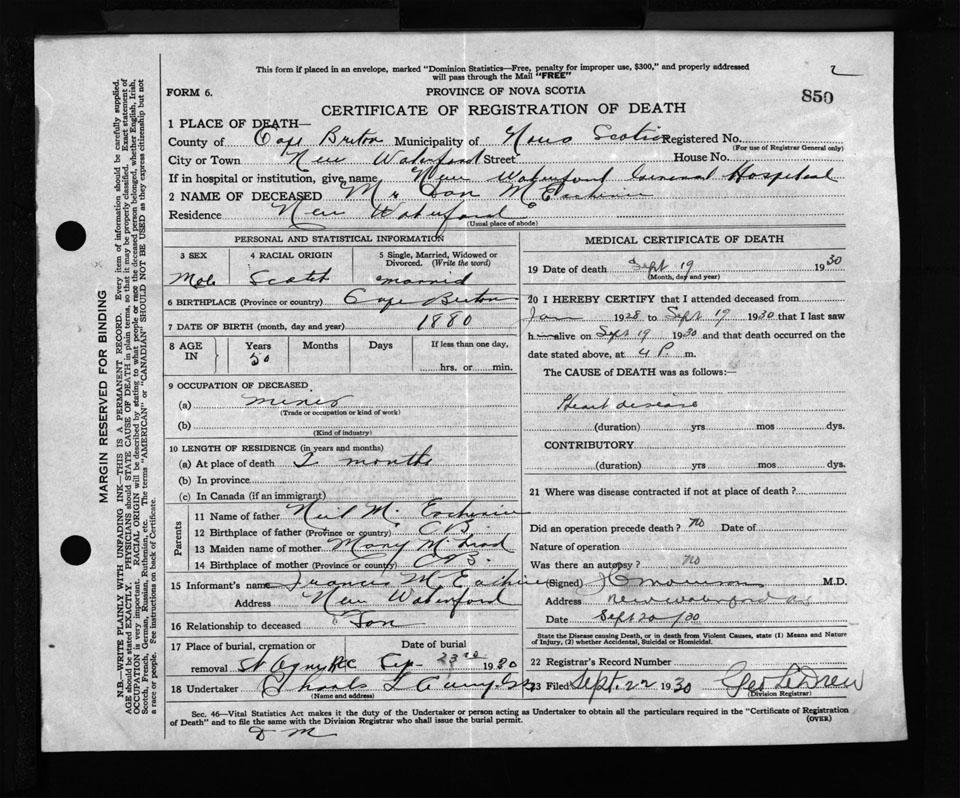 This form if placed in an envelope, marked "Dominion Statistics—Free, penalty for improper use, $300," and properly addressed
will pass through the Mail "FREE"
2
FORM 6.
PROVINCE OF NOVA SCOTIA
850
CERTIFICATE OF REGISTRATION OF DEATH
1 PLACE OF DEATH—
County of Cape Breton Municipality of Nova Scotia Registered No.
(For use of Registrar General only)
City or Town New Waterford Street House No.
If in hospital or institution, give name New Waterford General Hospital
2 NAME OF DECEASED Mr Dan McEachern
Residence New Waterford
(Usual place of abode)
PERSONAL AND STATISTICAL INFORMATION
3 SEX 4 RACIAL ORIGIN 5 Single, Married, Widowed or Divorced. (Write the word)
Male Scotch married
6 BIRTHPLACE (Province or country) Cape Breton
7 DATE OF BIRTH (month, day and year) 1880
8 AGE IN Years Months Days If less than one day,
50 hrs. or min.
9 OCCUPATION OF DECEASED.
(a) miner
(Trade or occupation or kind of work)
(b)
(Kind of industry)
10 LENGTH OF RESIDENCE (in years and months)
(a) At place of death 2 months
(b) In province
(c) In Canada (if an immigrant)
Parents
11 Name of father Neil McEachern
12 Birthplace of father (Province or country) C B
13 Maiden name of mother Mary McLeod
14 Birthplace of mother (Province or country) C B.
15 Informant's name Francis McEachern
Address New Waterford
16 Relationship to deceased Son
17 Place of burial, cremation or removal Date of burial
St Agnes Sep 23rd 1930
18 Undertaker
(Name and address)
MEDICAL CERTIFICATE OF DEATH
19 Date of death Sept 19 1930
(Month, day and year)
20 I HEREBY CERTIFY that I attended deceased from
Jan 1928 to Sept 19 1930 that I last saw
h alive on Sept 19 1930 and that death occurred on the
date stated above, at 4 P. m.
The CAUSE of DEATH was as follows:—
Heart disease
(duration) yrs mos dys.
CONTRIBUTORY
(duration) yrs mos dys.
21 Where was disease contracted if not at place of death?
Did an operation precede death? no Date of
Nature of operation
Was there an autopsy? no
(Signed) M.D.
Address New Waterford
Date Sept 20/30
State the Disease causing Death, or in death from Violent Causes, state (1) Means and Nature of Injury, (2) whether Accidental, Suicidal or Homicidal.
22 Registrar's Record Number
23 Filed Sept. 22 1930 Geo LeDrew
(Division Registrar)
Sec. 46—Vital Statistics Act makes it the duty of the Undertaker or person acting as Undertaker to obtain all the particulars required in the "Certificate of Registration
of Death" and to file the same with the Division Registrar who shall issue the burial permit.
(OVER)
D M
MARGIN RESERVED FOR BINDING
N.B.—WRITE PLAINLY WITH UNFADING INK—THIS IS A PERMANENT RECORD. Every item of information should be carefully supplied.
AGE should be stated EXACTLY. PHYSICIANS should STATE CAUSE OF DEATH in plain terms, so that it may be properly classified. Exact statement of
OCCUPATION is very important. RACIAL ORIGIN will be described by stating to what people or race the deceased person belonged, whether English, Irish,
Scotch, French, German, Russian, Ruthenian, etc. The terms "AMERICAN" or "CANADIAN" SHOULD NOT BE USED as they express citizenship but not
a race or people. See instructions on back of Certificate.